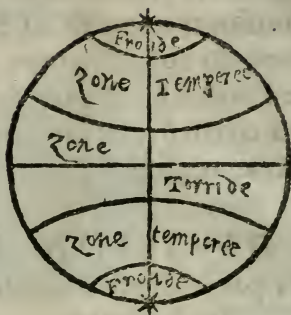 Froide
Zone Temperee
Zone
Torride
zone temperee
Froide